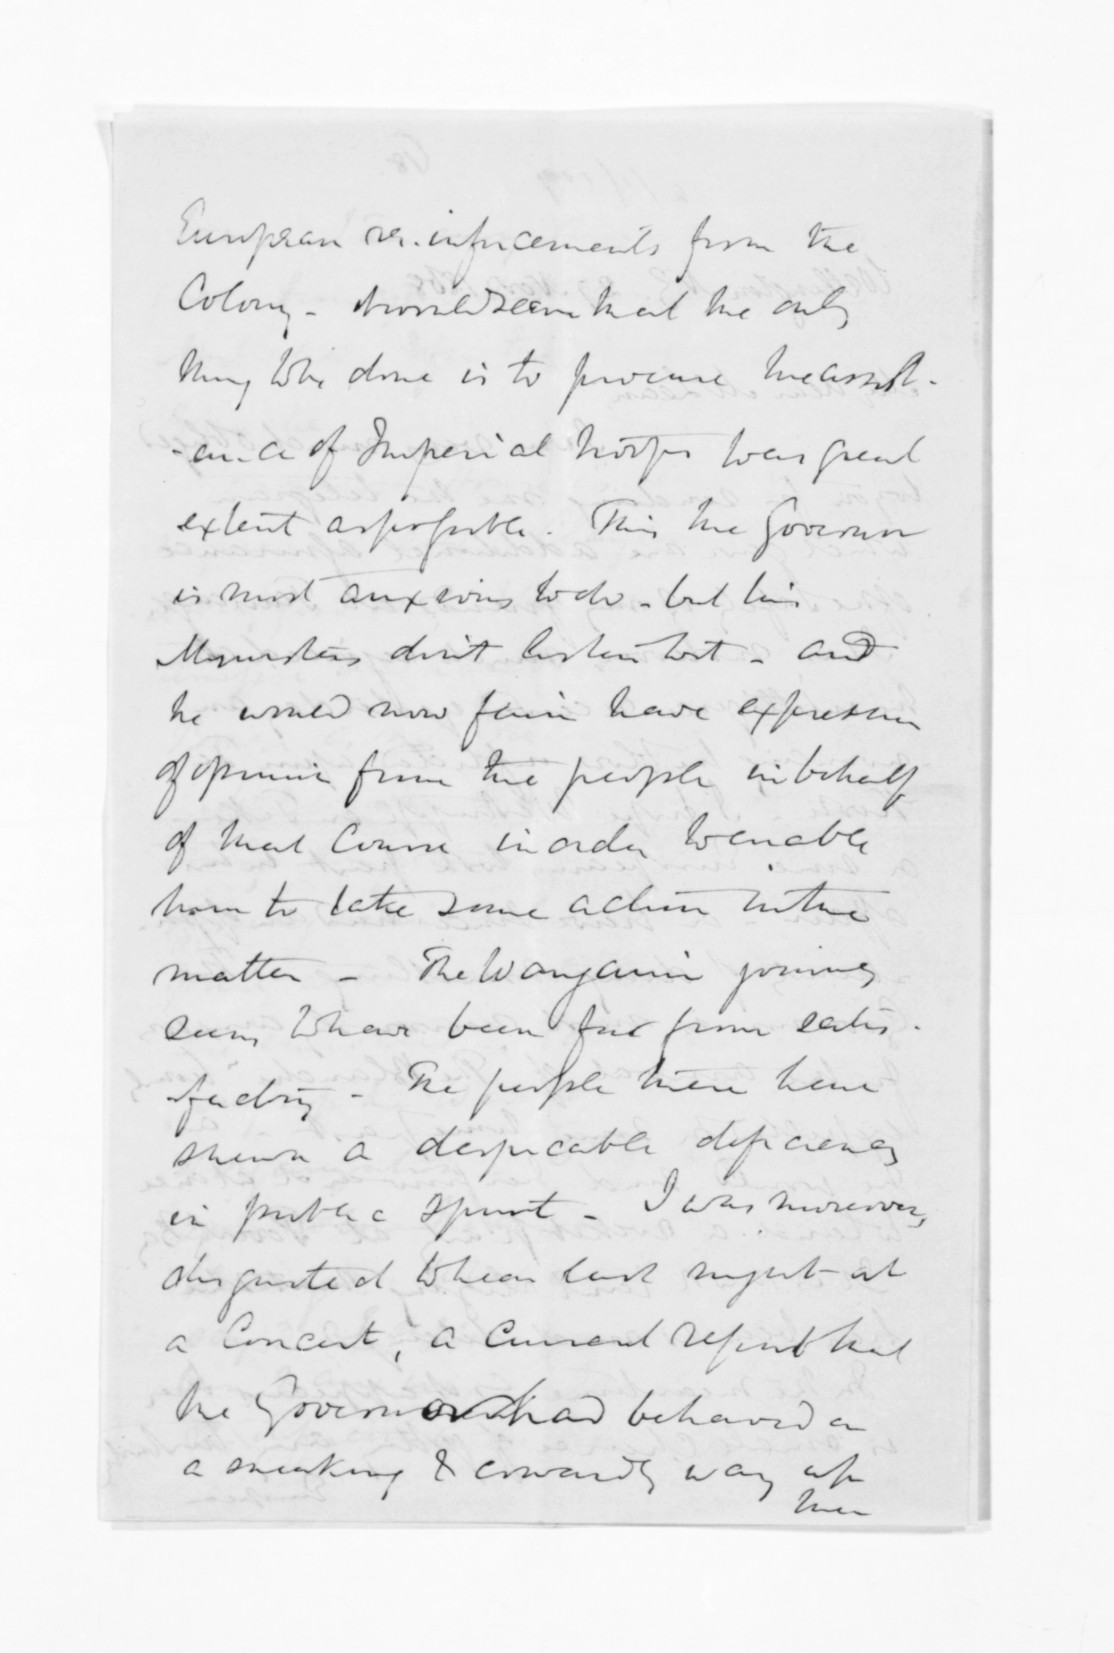 European re-inforcements from the
Colony - it would seem that the only
thing to be done is to procure the assist-
-ance of Imperial troops to as great
extent as possible. This the Governor
is most anxious to do - but his
Ministers don't listen to it - and
he would now fain have expression
of opinion from the people in behalf
of that course in order to enable
him to take some action in the
matter - The Wanganui journey
seems to have been far from satis-
factory - The people there have
shewn a despicable deficiency
in public spirit - I was moreover,
disgusted to hear last night at
a Concert, a current report that
the Governor had behaved in
a sneaking & cowardly way up
there